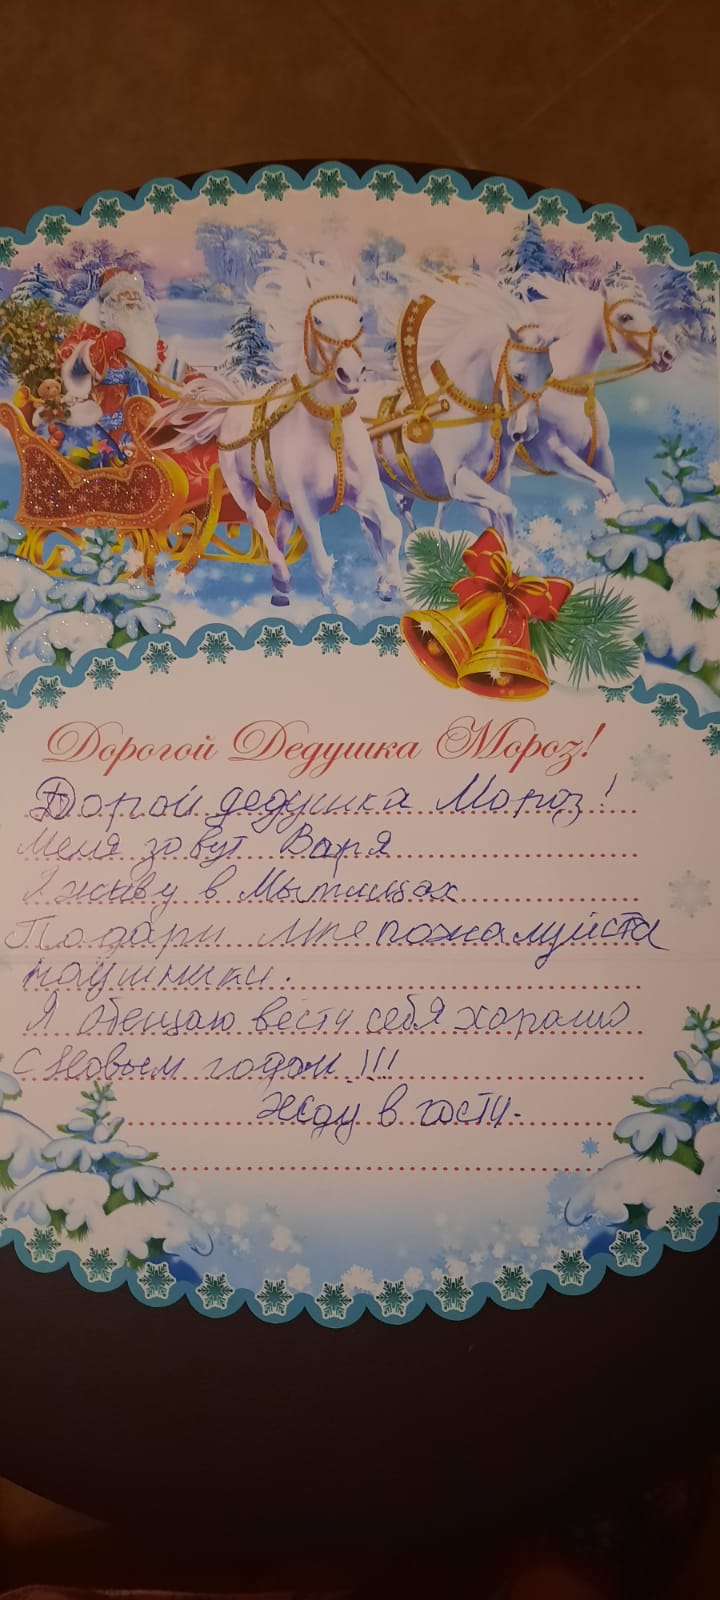 Дорогой Дедушка Мороз!
Дорой дедушка Мороз!
Меня зовут Варя
Я живу в Мытищах
Подари мне пожалуйста
наушники.
Я обещаю вести себя хорошо
С Новым годом!!!
Жду в гости.